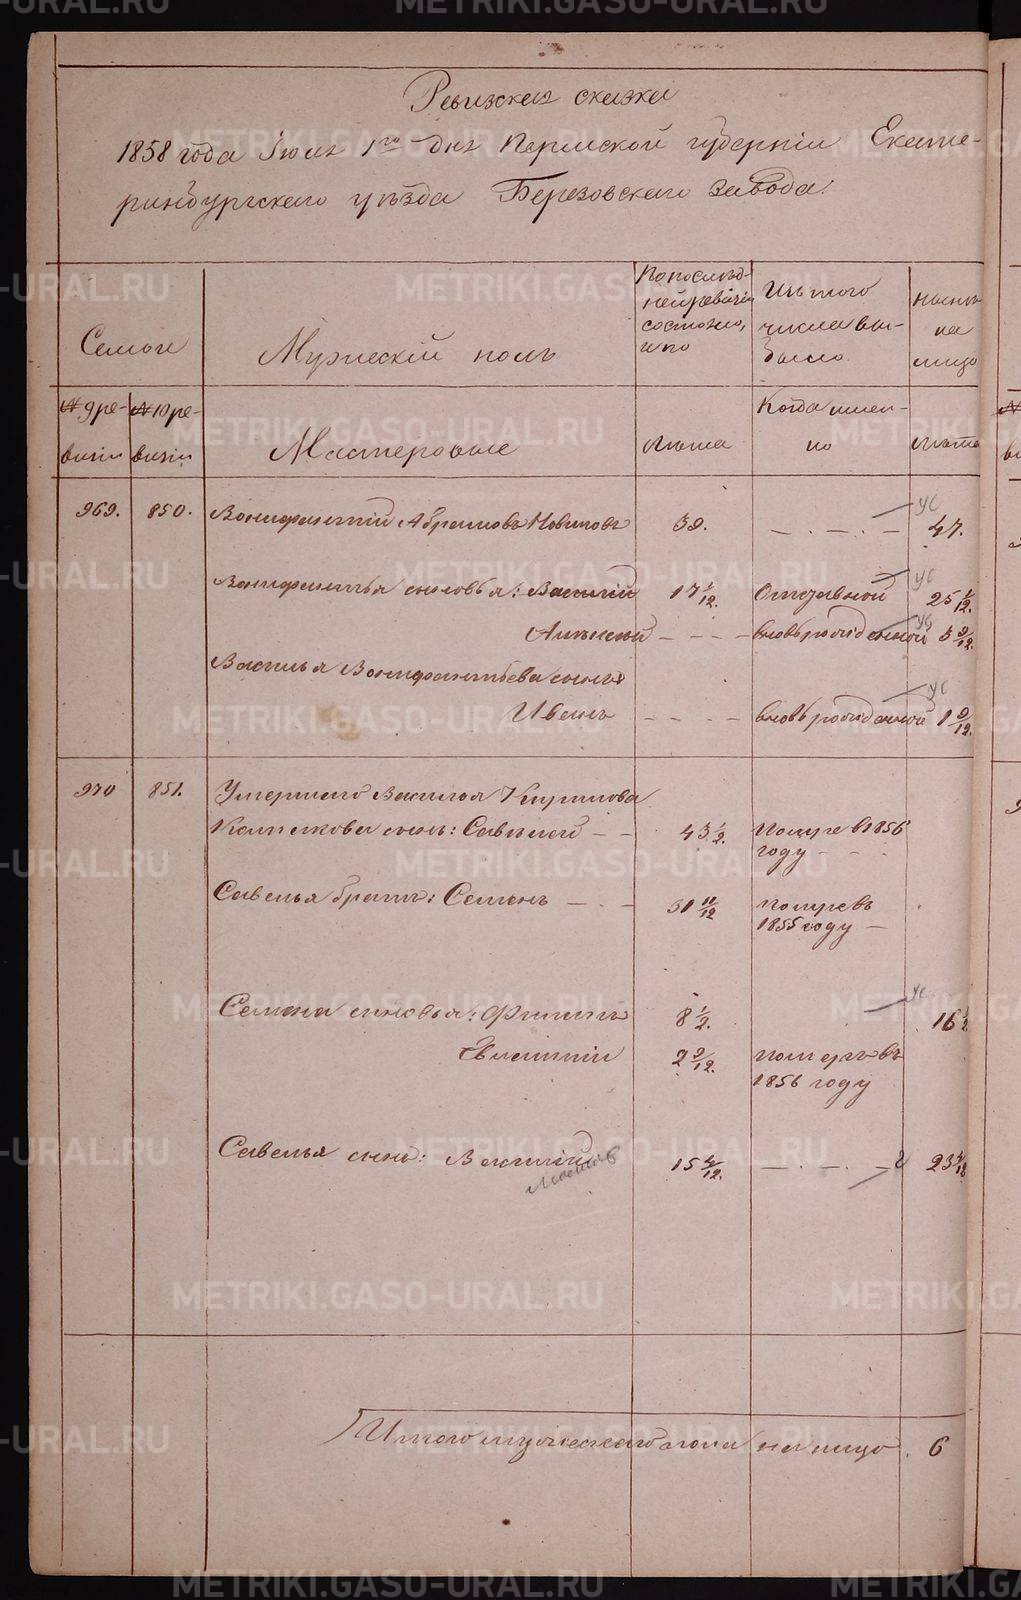 Ревизская сказка
1858 года Іюля 1го дня Пермской губерніи Екате-
ринбургскаго уѣзда Березовскаго завода.
Семьи
Мужескій полъ
По послѣд-
ней ревизіи
состояло,
и по
Изъ того
числа вы-
было
нынѣ
на
лицо
№ 9 ре-
визіи
№ 10 ре-
визіи
Мастеровые
Лѣта
Когда имен-
но
Лѣта
969. 850. Вонифантій Абрамовъ 39. — . — . — ус 47.
Вонифантья сыновья: Василій 17 1/12. Отставной ус 25 1/12.
Алексѣй — - - — вновьрожденной ус 5 9/12.
Василья Вонифантьева сынъ
Иванъ — - - — вновьрожденной ус 1 9/12.
970 851. Умершаго Василья
сынъ: Савелей — — 43 1/2. Помре в 1856
году — - -
Савелья братъ: Семенъ — . — 31 11/12 помре въ
1855 году —
Семена сыновья: Филипъ 8 1/2. ус 16 1/2
2 9/12. померъ въ
1856 году
Савелья сынъ: Василій 15 4/12. — . — . — 23 4/12
Итого мужескаго пола на лицо. 6
METRIKI.GASO-URAL.RU